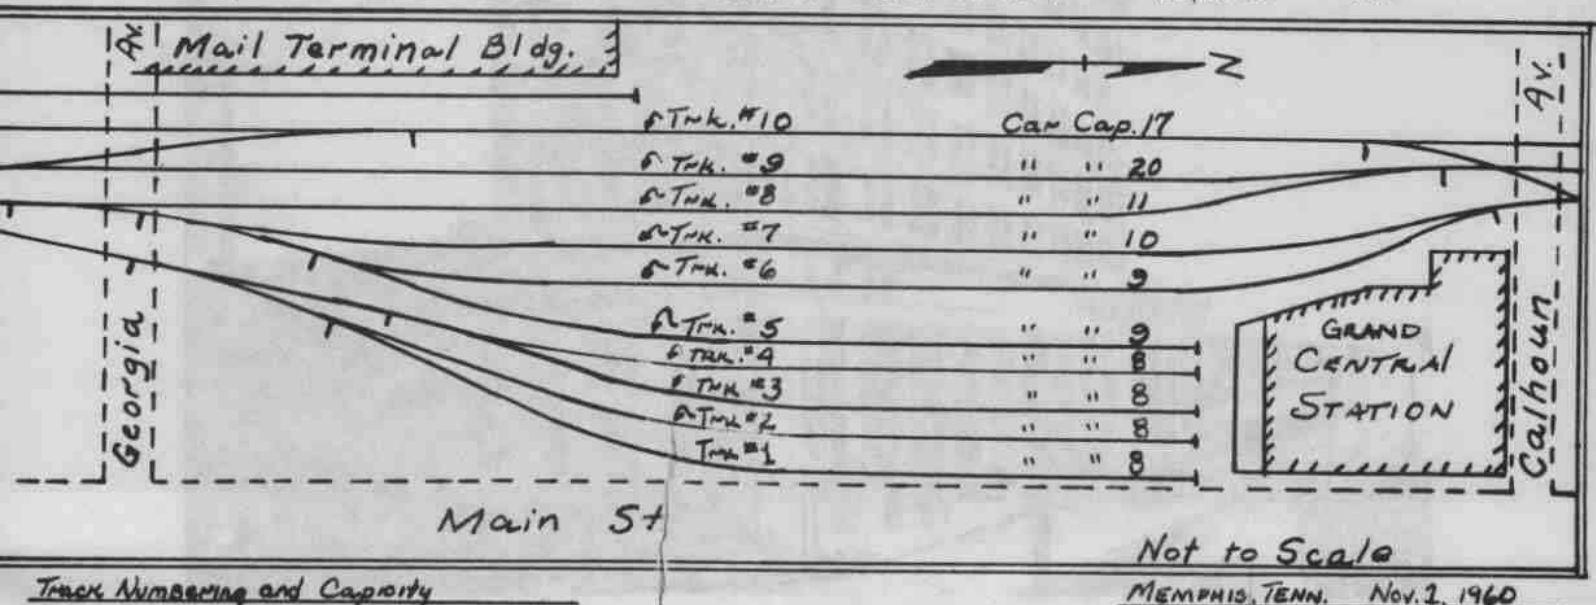 Av.
Mail Terminal Bldg.
N
Av.
Trk. #10 Car Cap. 17
Trk. #9 " " 20
Trk. #8 " " 11
Trk. #7 " " 10
Trk. #6 " " 9
Trk. #5 " " 9
Trk. #4 " " 8
Trk #3 " " 8
Trk #2 " " 8
Trk #1 " " 8
Georgia
GRAND
CENTRAL
STATION
Calhoun
Main St
Not to Scale
Track Numbering and Capicity
MEMPHIS, TENN. Nov. 1, 1960